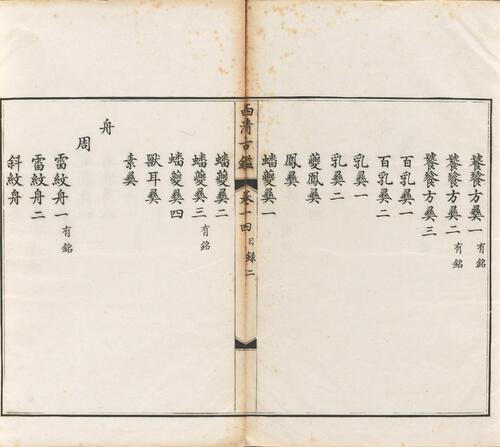 饕餮方彞一 有銘
饕餮方彞二 有銘
饕餮方彞三
百乳彞一
百乳彞二
乳彞一
乳彞二
夔鳳彞
鳳彞
蟠夔彞一
西清古鑑 卷十四 目錄 二
蟠夔彞二
蟠夔彞三 有銘
蟠夔彞四
獸耳彞
素彞
舟
周
雷紋舟一 有銘
雷紋舟二
斜紋舟